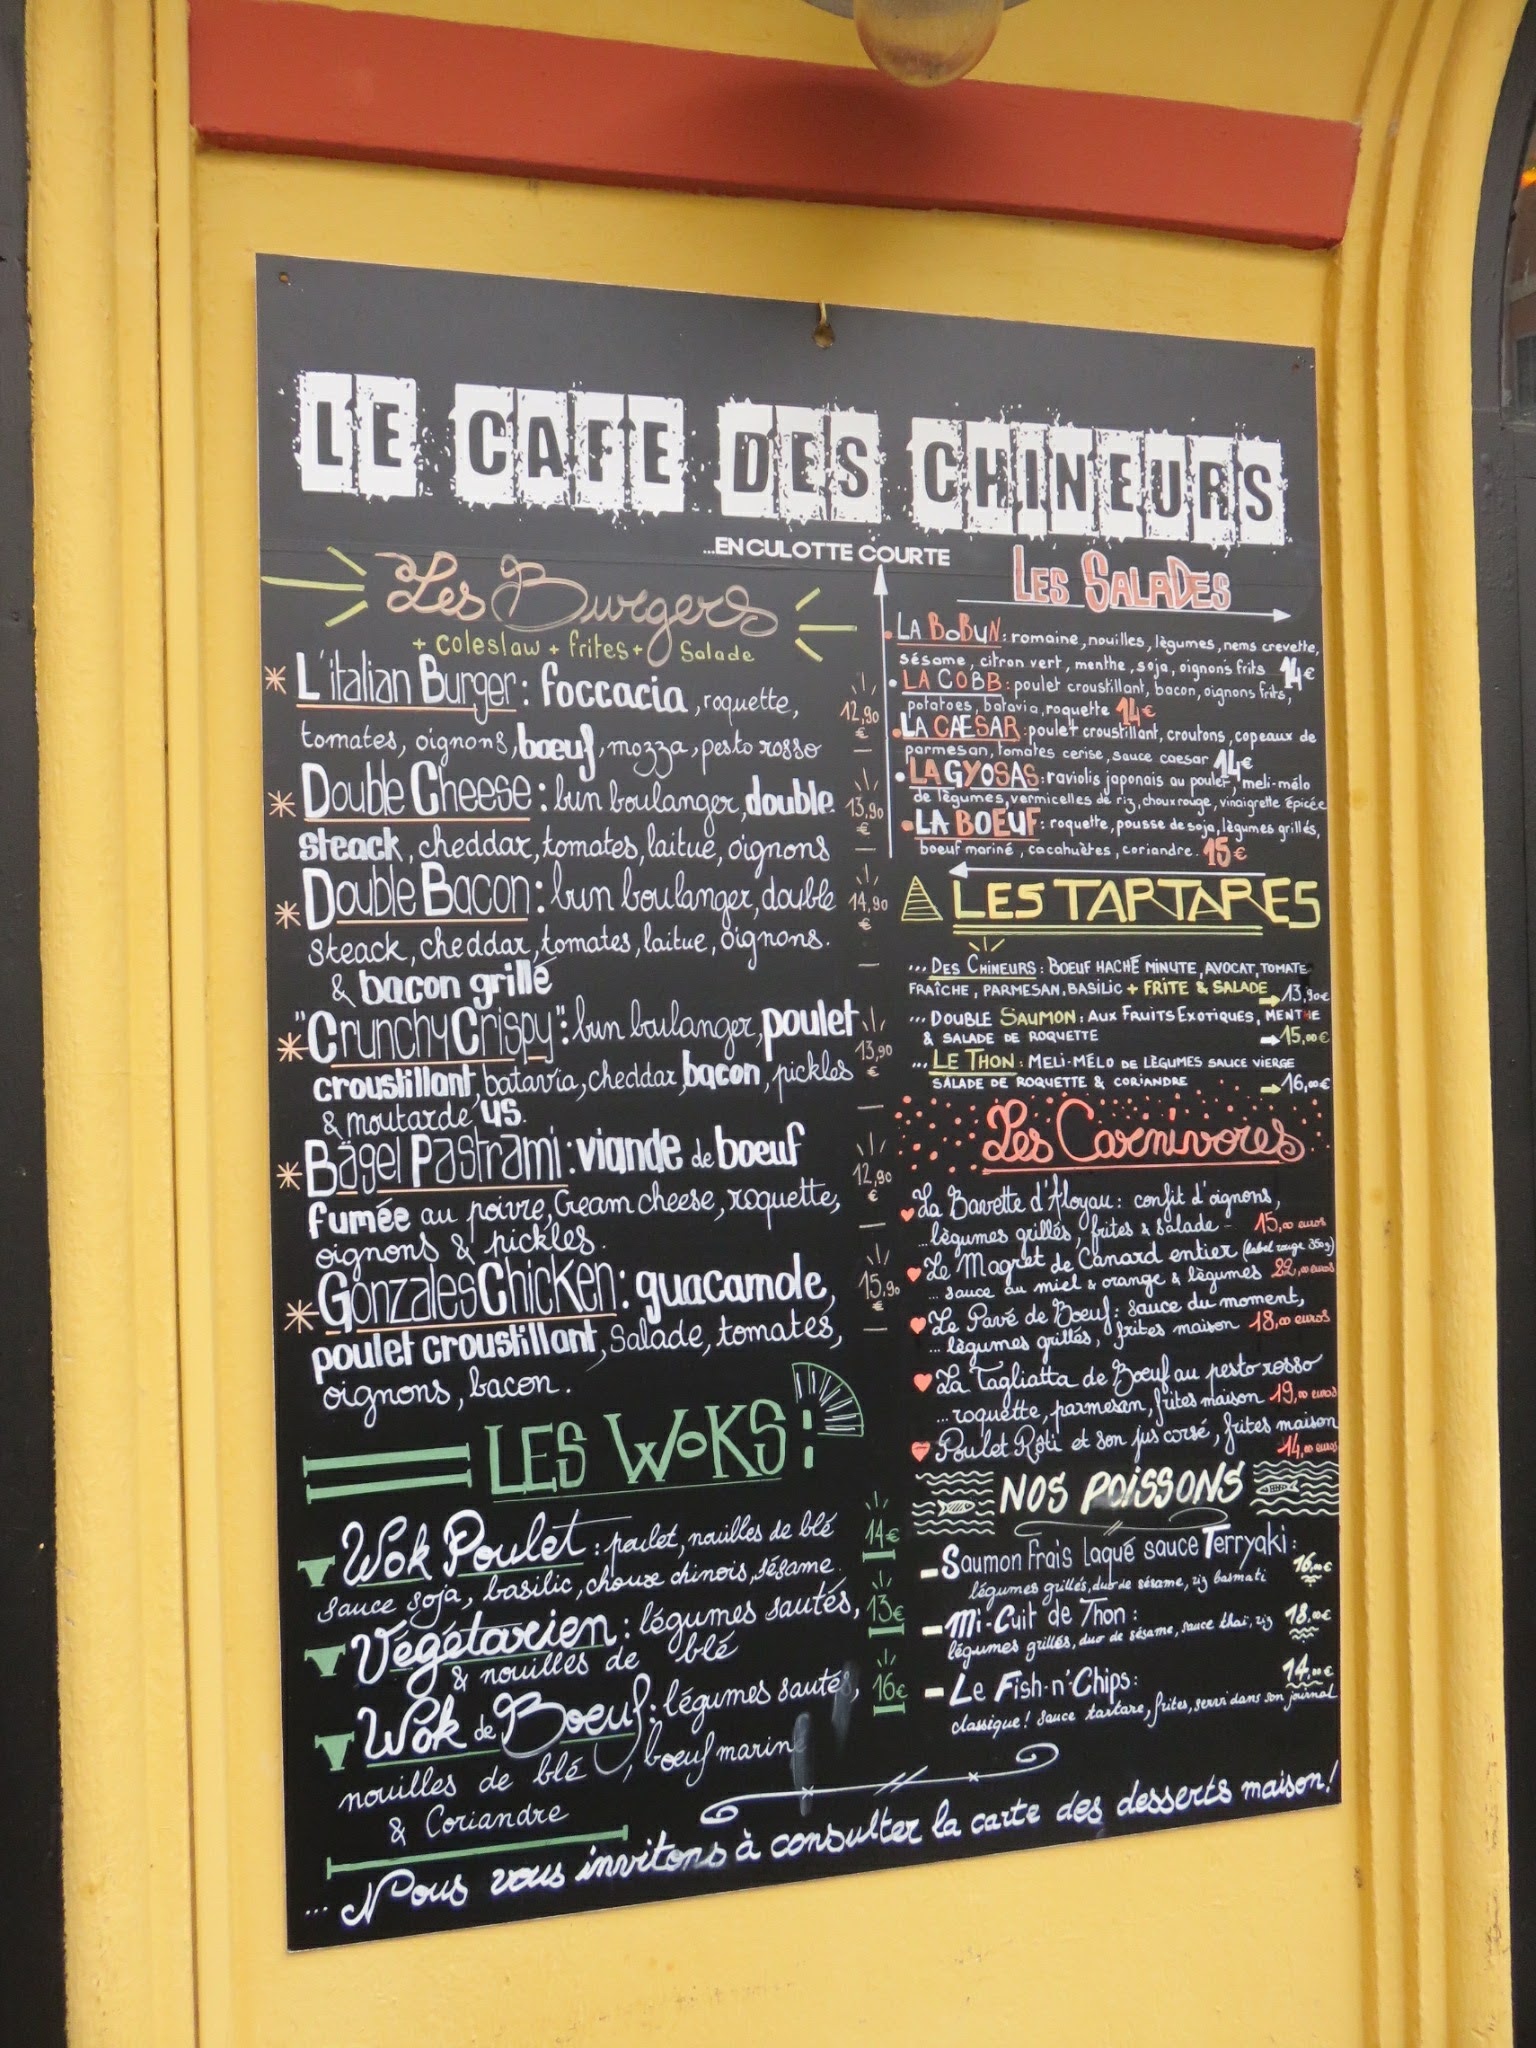 LE CAFE DES CHINEURS
...EN CULOTTE COURTE
Les Burgers
+ coleslaw + frites + Salade
L'italian Burger : foccacia, roquette,
tomates, oignons, bœuf, mozza, pesto rosso
12,90 €
Double Cheese : bun boulanger, double
steack, cheddar, tomates, laitue, oignons
13,90 €
Double Bacon : bun boulanger, double
steack, cheddar, tomates, laitue, oignons.
& bacon grillé
14,90 €
"Crunchy Crispy" : bun boulanger, poulet
croustillant, batavia, cheddar, bacon, pickles
& moutarde US.
13,90 €
Bagel Pastrami : viande de boeuf
fumée au poivre, Cream cheese, roquette,
oignons & pickles.
12,90 €
Gonzales Chicken : guacamole,
poulet croustillant, Salade, tomates,
oignons, bacon.
15,90 €
LES WOKS :
Wok Poulet : poulet, nouilles de blé
sauce soja, basilic, choux chinois, sésame.
14€
Végétarien : légumes sautés,
& nouilles de blé
13€
Wok de Boeuf : légumes sautés,
nouilles de blé, bœuf mariné
& Coriandre
16€
LES SALADES
LA BOBUN : romaine, nouilles, lègumes, nems crevette,
sésame, citron vert, menthe, soja, oignons frits 14€
LA COBB : poulet croustillant, bacon, oignons frits,
potatoes, batavia, roquette 14€
LA CAESAR : poulet croustillant, croutons, copeaux de
parmesan, tomates cerise, sauce caesar 14€
LA GYOSAS : raviolis japonais au poulet, meli-mélo
de lègumes, vermicelles de riz, choux rouge, vinaigrette épicée
LA BOEUF : roquette, pousse de soja, lègumes grillés,
boeuf mariné, cacahuètes, coriandre. 15€
LES TARTARES
... DES CHINEURS : BOEUF HACHE MINUTE, AVOCAT, TOMATE
FRAÎCHE, PARMESAN, BASILIC + FRITE & SALADE 13,90€
... DOUBLE SAUMON : AUX FRUITS EXOTIQUES, MENTHE
& SALADE DE ROQUETTE 15,00€
... LE THON : MELI-MÉLO DE LÈGUMES SAUCE VIERGE
SALADE DE ROQUETTE & CORIANDRE 16,00€
Les Carnivores
La Bavette d'Aloyau : confit d'oignons,
...légumes grillés, frites & salade - 15,00 euros
Le Magret de Canard entier (label rouge 350g)
... sauce au miel & orange & lègumes 22,00 euros
Le Pavé de Boeuf : sauce du moment,
... lègumes grillés, frites maison 18,00 euros
La Tagliatta de Boeuf au pesto rosso
...roquette, parmesan, frites maison 19,00 euros
Poulet Rôti et son jus corsé, frites maison
14,00 euros
NOS POISSONS
Saumon Frais laqué sauce Terryaki :
légumes grillés, duo de sésame, riz basmati 16,00€
Mi-Cuit de Thon :
légumes grillés, duo de sésame, sauce thai, riz 18,00€
Le Fish-n'Chips : 14,00€
classique ! sauce tartare, frites, servi dans son journal
... Nous vous invitons à consulter la carte des desserts maison !